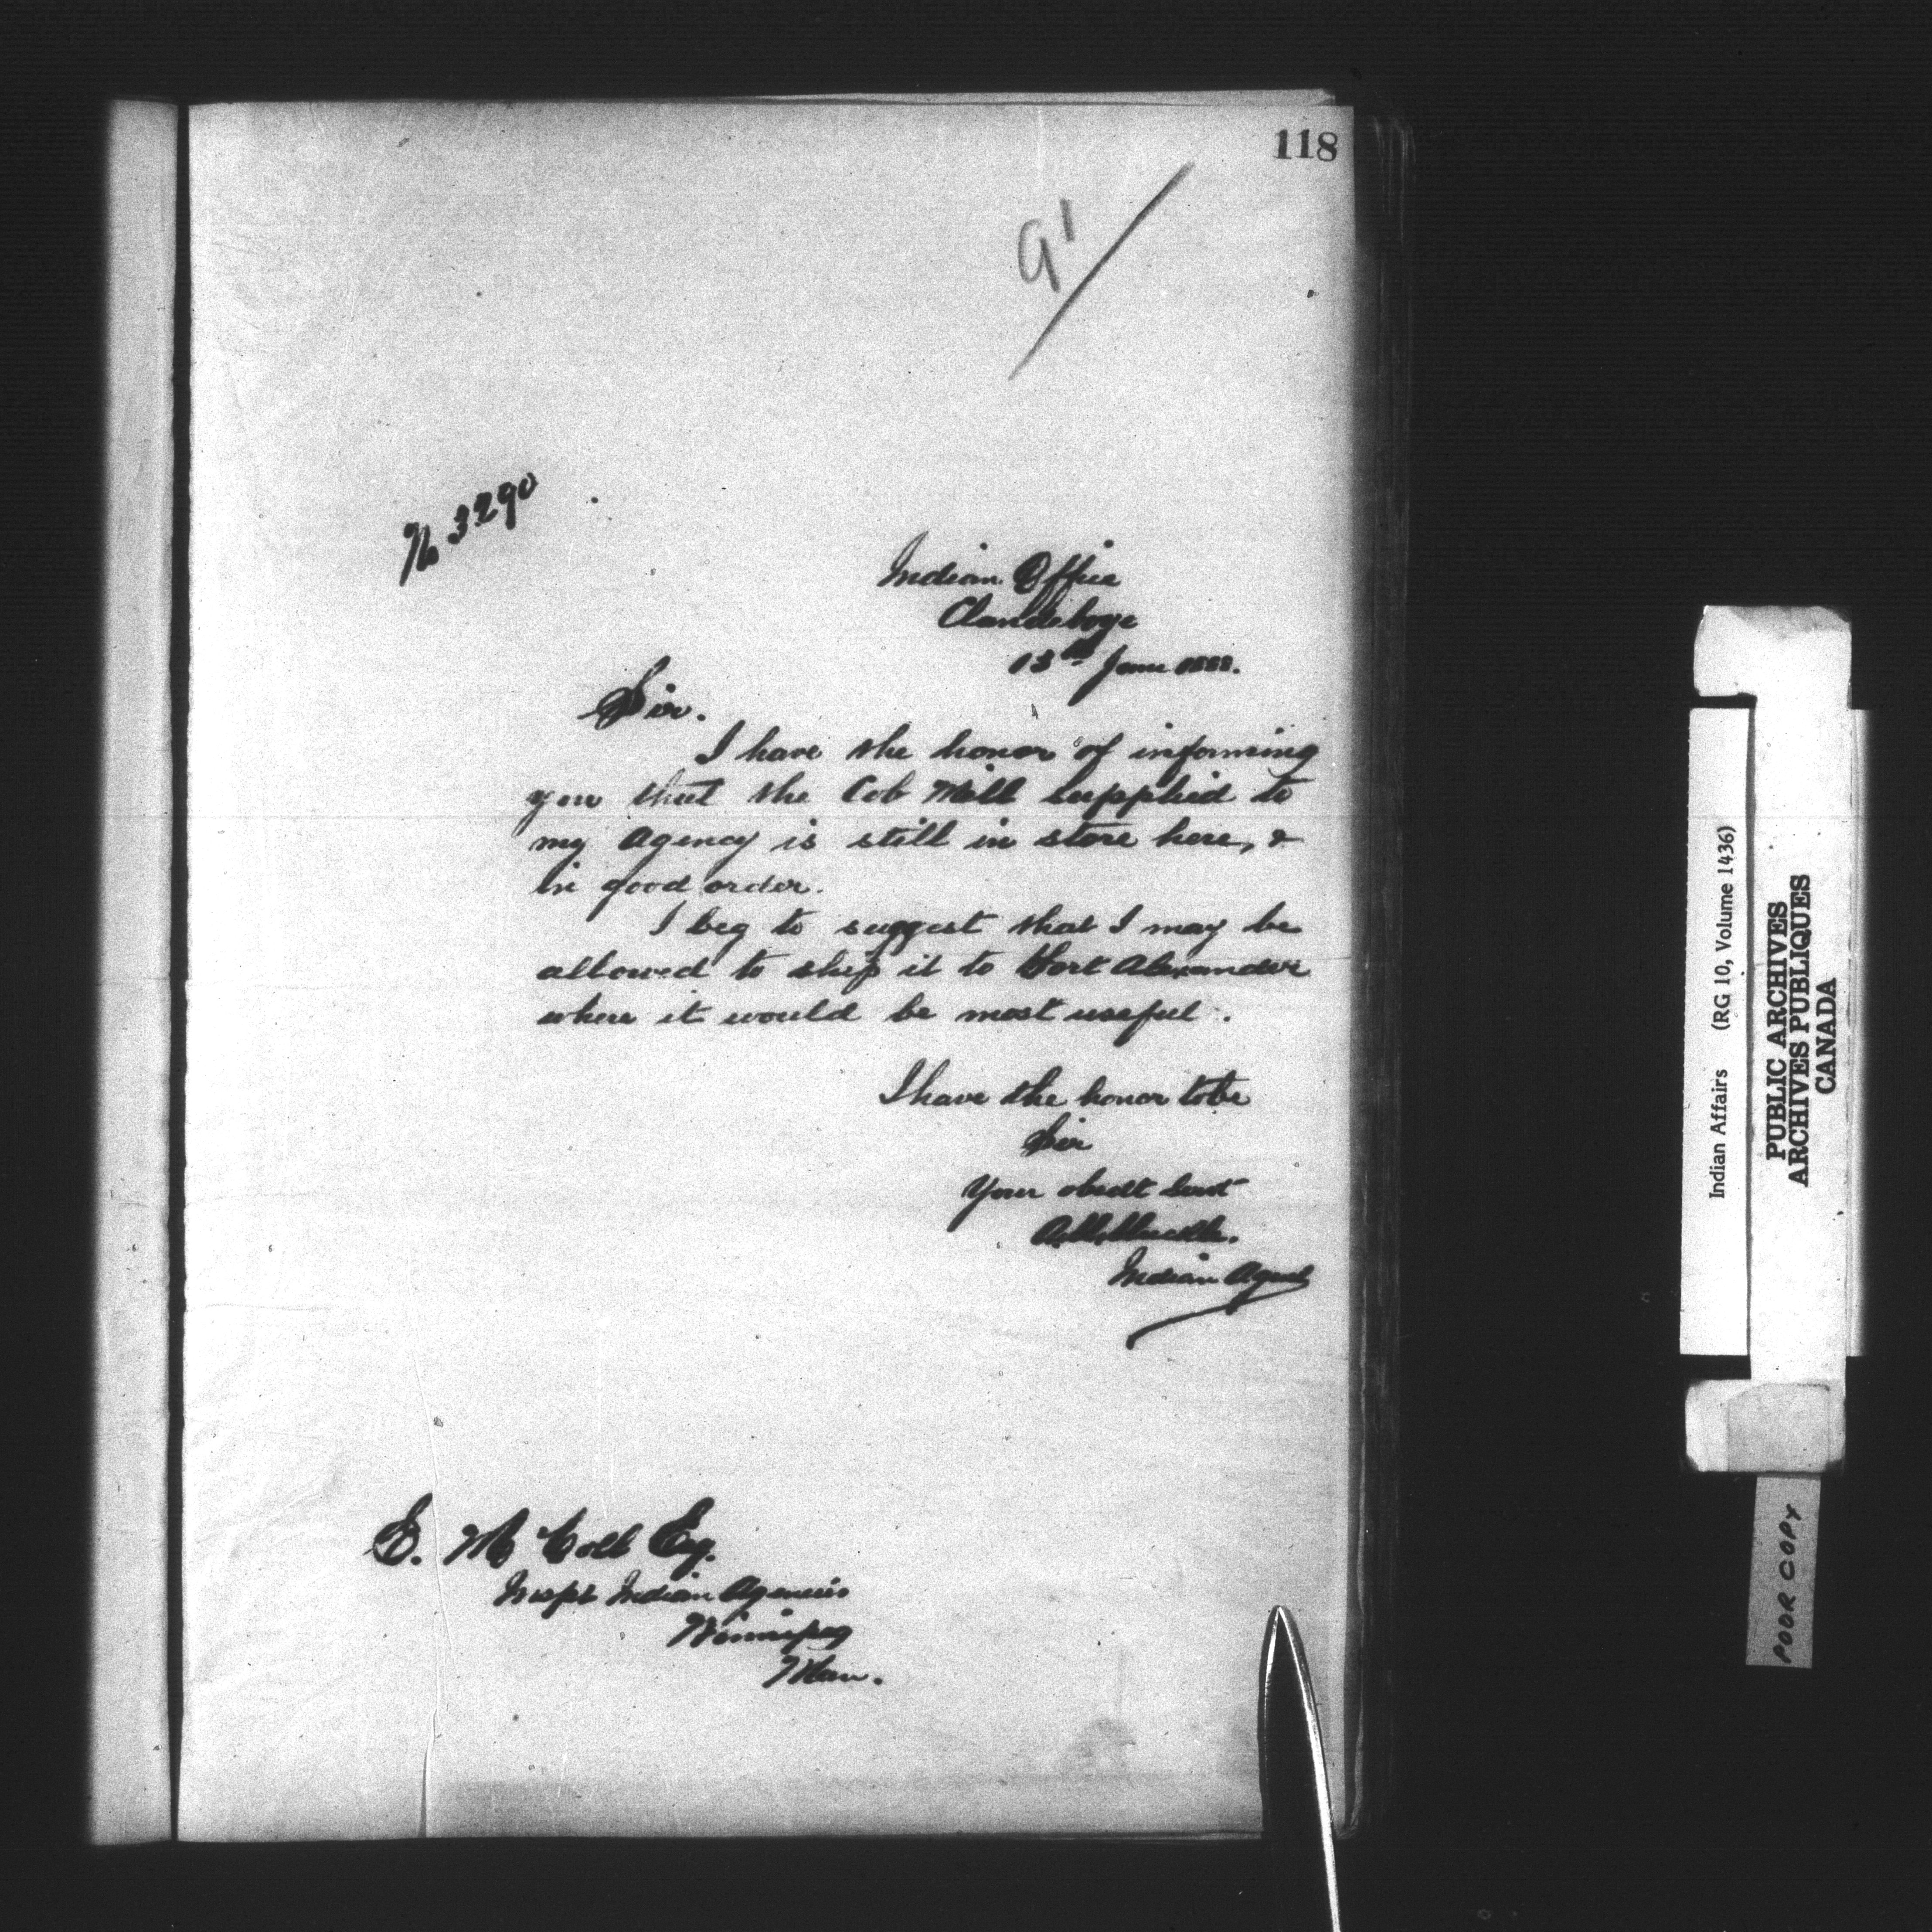 118
91
No 3290
Indian Office
Clandeboye
13th June 1888.
Sir.
I have the honor of informing
you that the Cob Mill supplied to
my Agency is still in store here, &
in good order.
I beg to suggest that I may be
allowed to ship it to Fort Alexander
where it would be most useful.
I have the honor to be
Sir
Your obedt Servt
Indian Agent
E. McColl Esq.
Inspt Indian Agencies
Winnipeg
Man.
Indian Affairs (RG 10, Volume 1436)
PUBLIC ARCHIVES
ARCHIVES PUBLIQUES
CANADA
POOR COPY